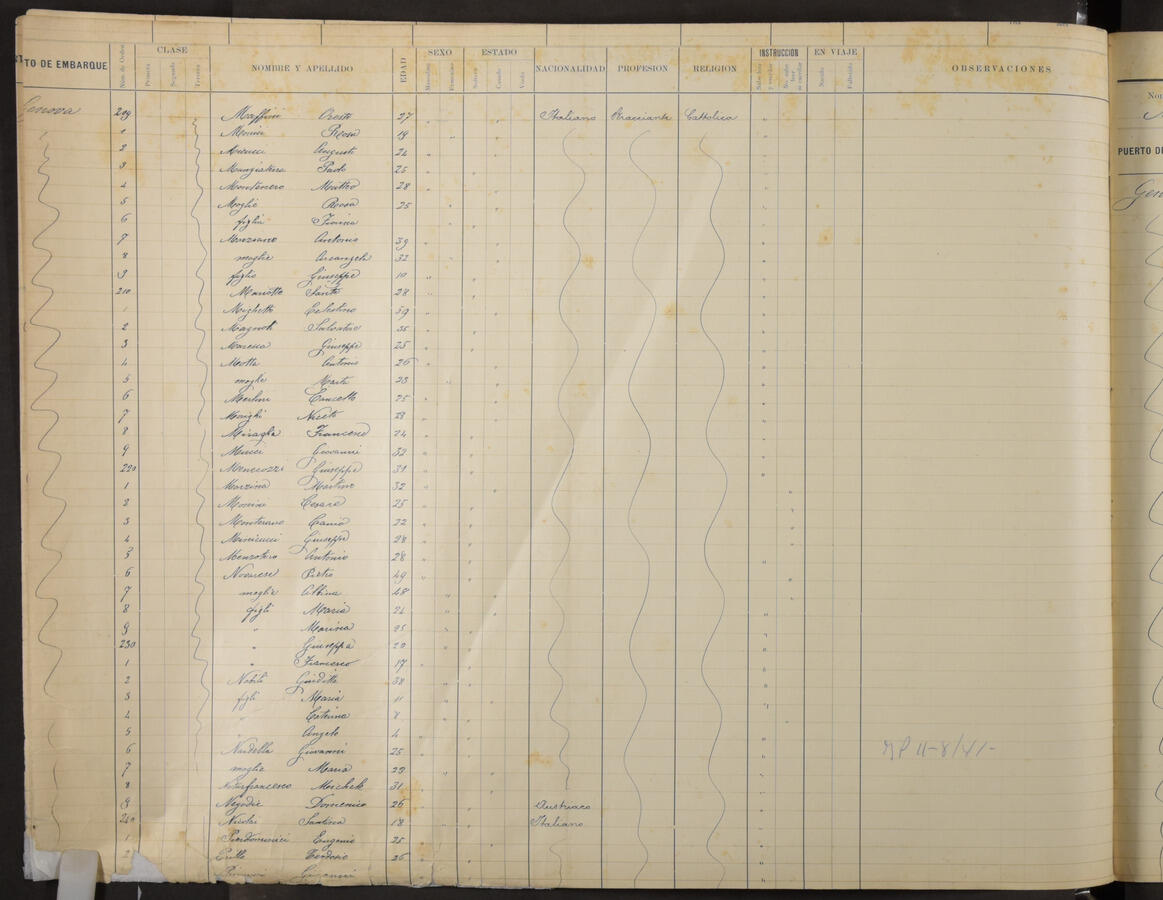 TO DE EMBARQUE Núm. de Orden CLASE Primera Segunda Tercera NOMBRE Y APELLIDO EDAD SEXO Masculino Femenino ESTADO Soltero Casado Viudo NACIONALIDAD PROFESION RELIGION INSTRUCCION EN VIAJE Nacido Fallecido OBSERVACIONES
Genova 209 Maffini Oreste 27 Italiano Bracciante Cattolica
1 Monini Rosa 19
2 Augusto 24
3 Paolo 25
4 Montenero Matteo 28
5 Moglie Rosa 25
6 figlia
7 Marzano Antonio 39
8 moglie Arcangela 32
9 figlio Giuseppe 10
210 Mariotto Santo 28
1 Mighetto Celestino 59
2 Magnoli Salvatore 35
3 Maresca Giuseppe 25
4 Motta Antonio 26
5 moglie Marta 23
6 Merlini 25
7 23
8 Miraglia Francesco 24
9 Mucci Giovanni 32
220 Menecozzi Giuseppe 31
1 Marzina Martino 32
2 Monini Cesare 25
3 Monterano Canio 22
4 Minicucci Giuseppe 28
5 Antonio 28
6 Novarese Pietro 49
7 moglie Albina 48
8 figli Maria 24
9 " Marina 25
230 " Giuseppa 20
1 " Francesco 17
2 Nobili Giuditta 38
3 figli Maria 11
4 " Caterina 8
5 Angelo 4
6 Nardella Giovanni 25 MP 11-8/41-
7 moglie Maria 29
8 Notarfrancesco Michele 31
9 Negodic Domenico 26 Austriaco
240 Nicolai Santina 18 Italiano
1 Pierdominici Eugenio 25
2 Teodosio 26
Giovanni
PUERTO DE
Gen